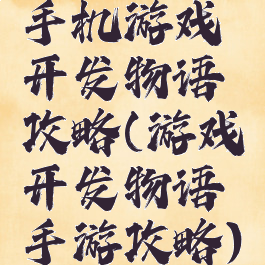 手机游戏
开发物语
攻略(游戏
开发物语
手游攻略)